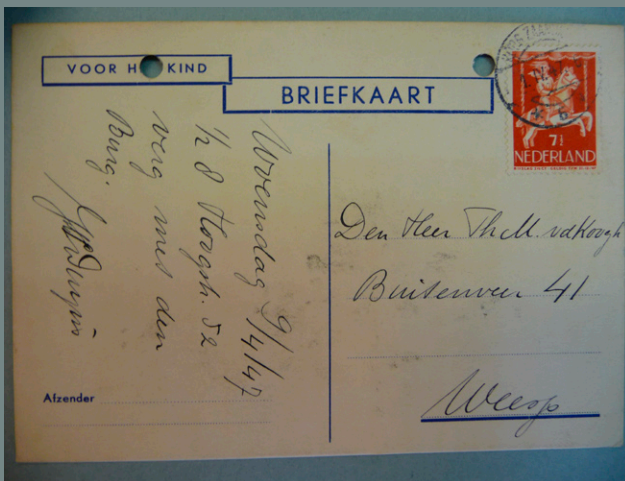 VOOR H KIND
BRIEFKAART
7½
NEDERLAND
Woensdag 9/4/47
½ 8 Hoogstr. 52
verg met den
Burg.
Den Heer Th.M. vd Koogh
Buitenveer 41
Weesp
Afzender